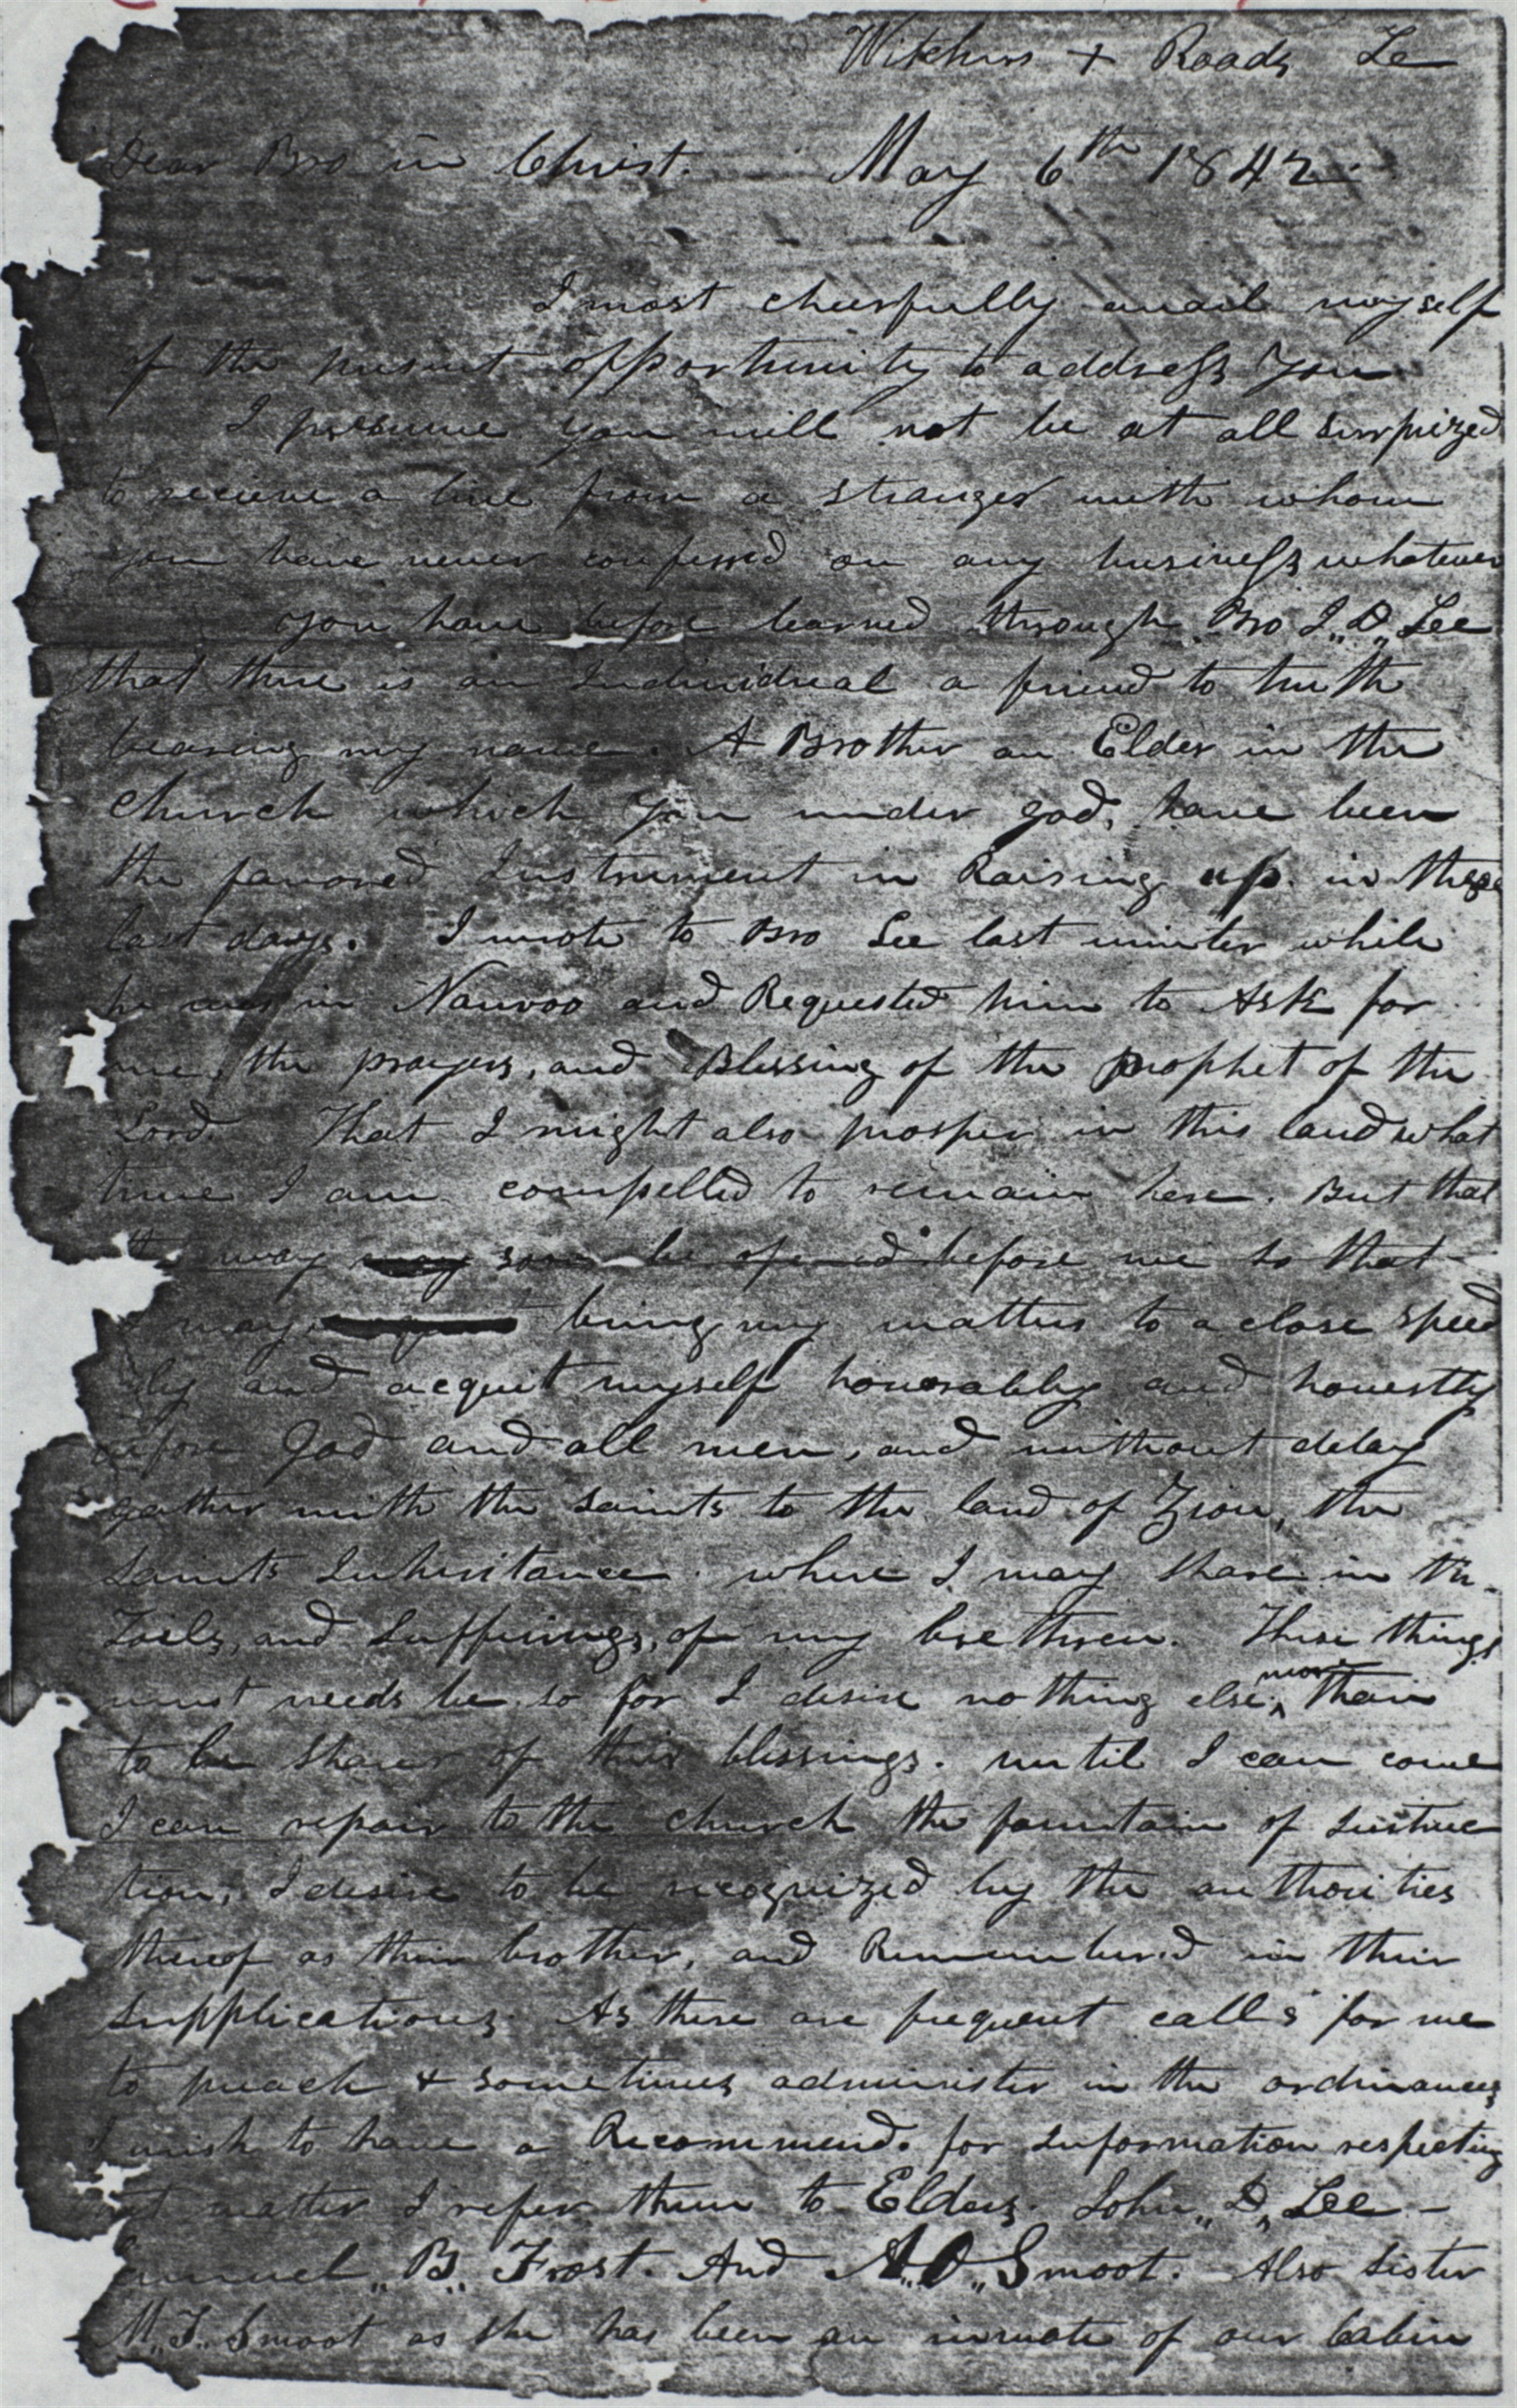 Witchers + Roads Te
Dear Bro in Christ. May 6th 1842
I most cheerfully avail myself
of the present opportunity to address you
I presume you will not be at all surprized
to recieve a line from a stranger with whom
you have never confessed on any business whatever
You have before learned through Bro J,, D,, Lee
that there is an Individual a friend to truth
bearing my name. A Brother an Elder in the
Church which you under god, have been
the favored Instrument in Raising up in these
last days. I wrote to Bro Lee last winter while
he was in Nauvoo and Requested him to Ask for
me, the prayers, and Blessing of the prophet of the
Lord. That I might also prosper in this land what
time I am compelled to remain here. But that
way soon be opened before me so that
I may bring my matters to a close speed
ily and acquit myself honorably and honestly
before God and all men, and without delay
gather with the saints to the land of Zion, the
saints Inheritance. where I may share in the
Toils, and Sufferings, of my brethren. These things
must needs be so for I desire nothing else, more than
to be sharer of their blessings. until I can come
I can repair to the church the fountain of Instruc
tion, I desire to be recognized by the authorities
thereof as their brother, and Rememberd in their
supplications. As there are frequent calls for me
to preach & sometimes administer in the ordinances
I wish to have a Recommend. for Information respecting
matter I refer them to Elders. John,, D,, Lee -
Samuel,, B,, Frost. And A,, O,, Smoot. Also sister
M,, T,, Smoot as she has been an inmate of our Cabin